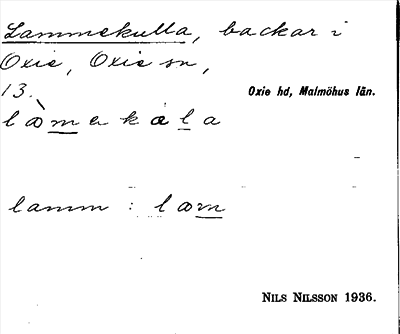 Lammekulla, backar i
Oxie, Oxie sn,
13.
Oxie hd, Malmöhus län.
lamm :
NILS NILSSON 1936.